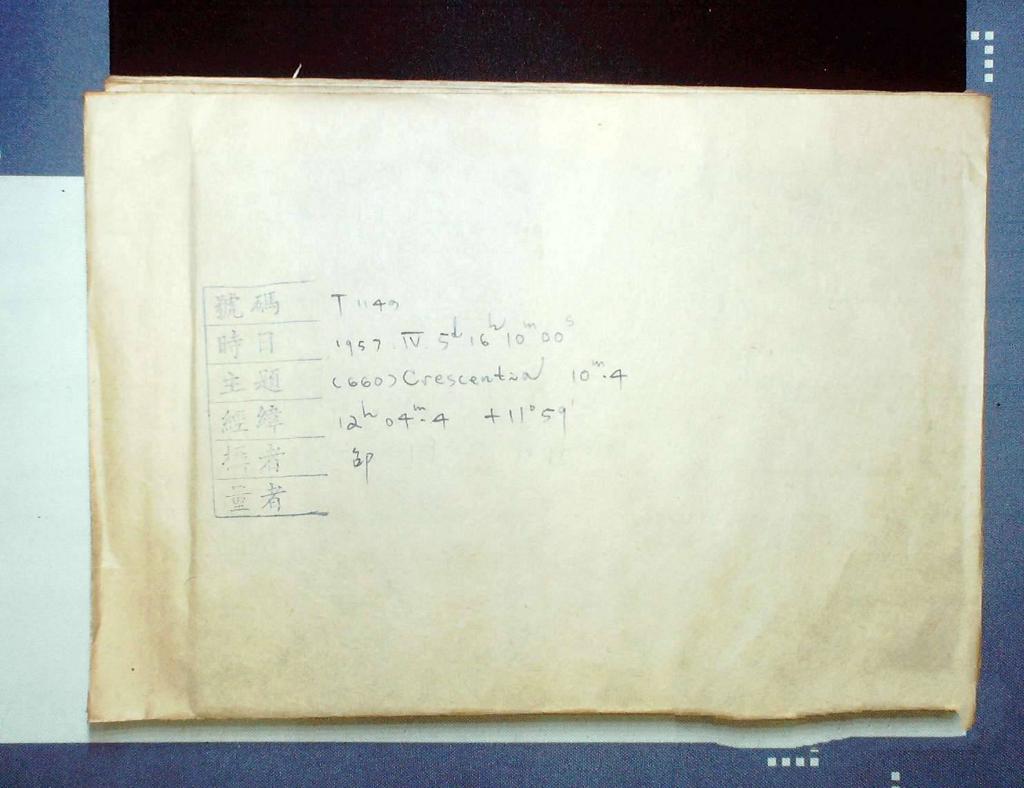 號碼 T 1149
時日 1957. IV. 5d 16h 10m 00s
主題 (660) Crescentia 10m.4
經緯 12h 04m.4 +11°59'
攝者 邵
量者